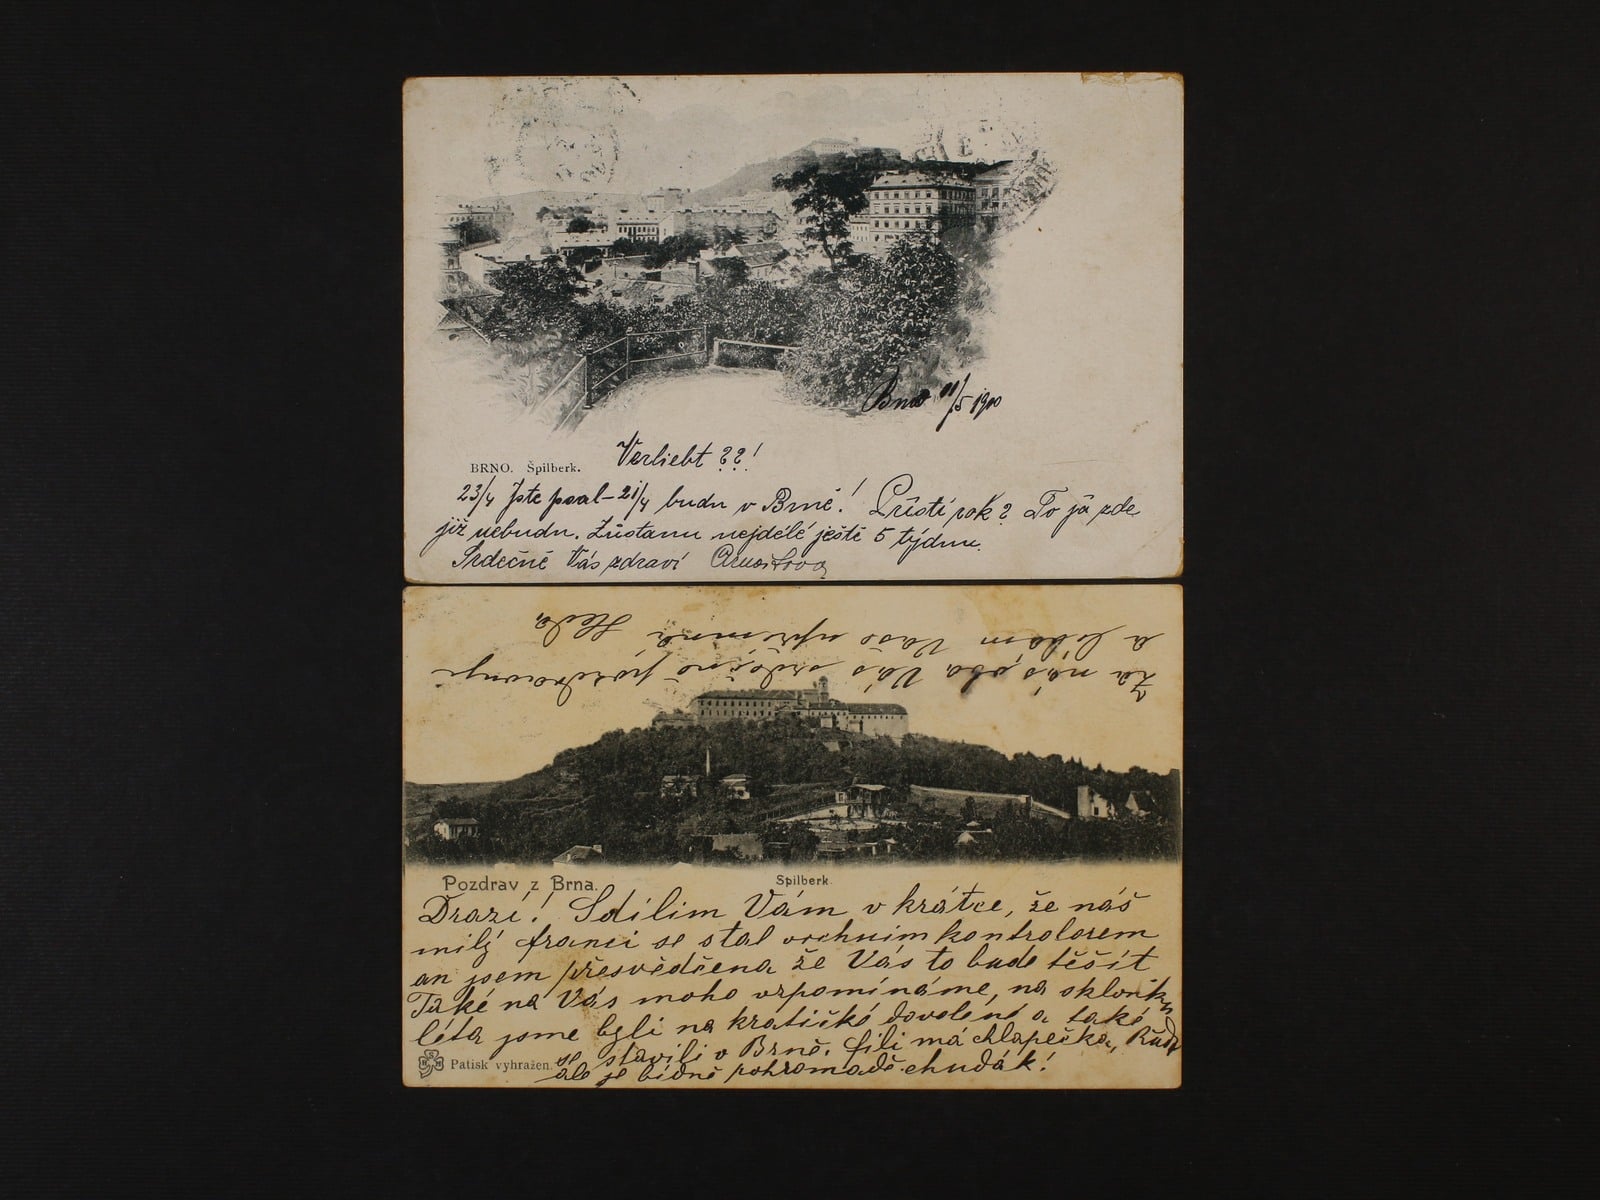 Brno 11/5 1900
Verliebt ??!
BRNO. Špilberk.
23/4 Jste psal – 21/4 budu v Brně! Příští rok? To já zde
již nebudu. Zůstanu nejdélé ještě 5 týdnu.
Srdečně Vás zdraví
Za nás oba Vás srdečně pozdravuje
a líbám Vaše upřímná Heda
Pozdrav z Brna.
Spilberk.
Drazí! Sdílim Vám v krátce, že náš
milý franci se stal vrchním kontrolorem
an jsem přesvědčena že Vás to bude těšit
Také na Vás moho vzpomínáme, na sklonku
léta jsme byli na kratičké dovolené a také
se stavili v Brně. fili má chlapečka,
ale je bídně pohromadě chudák!
Patisk vyhražen.